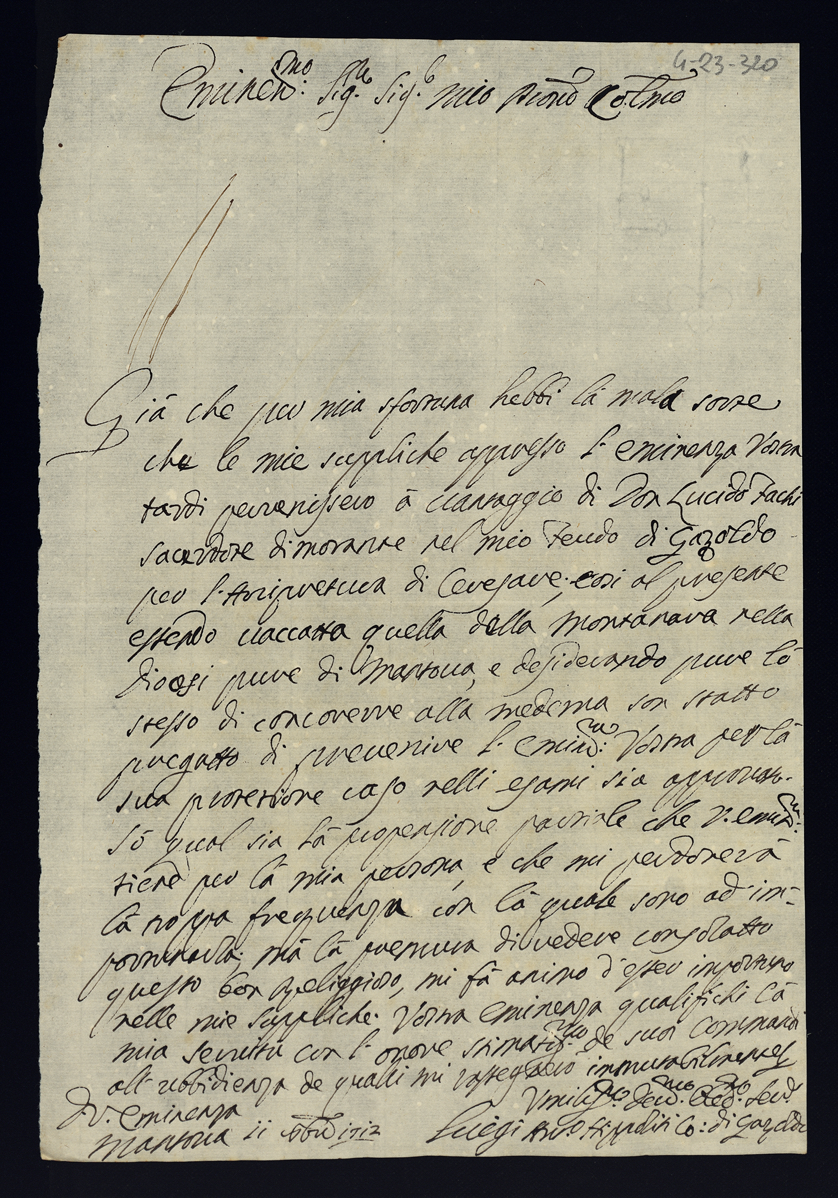 4-23-320
Eminen.mo Sig.re Sig.r mio Pron Co.lmo
Già che per mia sfortuna hebbi là mala sorte
che le mie suppliche appresso l'eminenza Vostra
tardi pervenissero à vantaggio di Don Lucido Fachi
sacerdote dimorante nel mio feudo di Gazoldo
per l'Arcipretura di Ceresare, così al presente
essendo vaccatta quella della Montanara nella
diocesi pure di Mantova, e desiderando pure lo
stesso di concorrere alla medema son statto
pregatto di prevenire l'emin.za Vostra per là
sua protetione caso nelli esami sia approvato.
Sò qual sia là propensione parziale che V. emin.za
tiene per là mia persona, e che mi perdonerà
là troppa frequenza con là quale sono ad im-
portunarla; mà là premura di vedere consolatto
questo bon Religgioso, mi fà animo d'esser importuno
nelle mie suppliche. Vostra eminenza qualifichi là
mia servitù con l'onore stimatis.mo de suoi commandi
all'ubbidienza de qualli mi rassegnio immutabilmente
D. V. eminenza
Mantova 11 1712
Umilis.mo Dev.mo Serv.
Luigi Ant.o Hippoliti Co: di Gazoldo